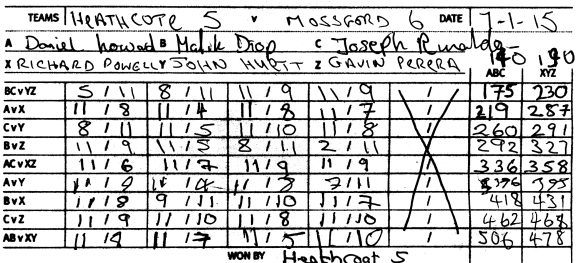 TEAMS HEATHCOTE 5 v MOSSFORD 6 DATE 7-1-15
A Daniel Howard B Malik Diop C Joseph
X RICHARD POWELL Y JOHN HURTT Z GAVIN PERERA 140 190
ABC XYZ
BCvYZ 5/11 8/11 11/9 11/9 / 175 230
AvX 11/8 11/4 11/8 11/7 / 219 257
CvY 8/11 11/5 11/10 11/8 / 260 291
BvZ 11/9 11/5 8/11 2/11 / 292 327
ACvXZ 11/6 11/7 11/9 11/9 / 336 358
AvY 7/11 /
BvX 11/8 9/11 11/10 11/7 / 418 431
CvZ 11/9 11/10 11/8 11/10 / 462 468
ABvXY 11/4 11/7 11/5 11/10 / 506 478
WON BY Heathcoat 5